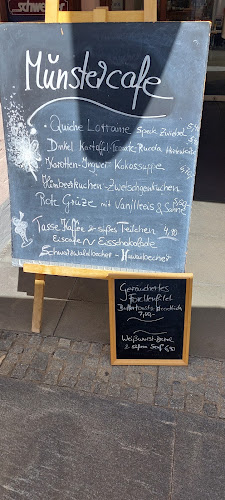 schwe
Münstercafe
Quiche Lorraine Speck Zwiebel
Dinkel Kartoffel-Tomate-Rucola
Karotten-Ingwer-Kokossuppe
Himbeerkuchen-Zwetschgenkuchen
Rote Grütze mit Vanilleeis & Sahne
Tasse Kaffee & süßes Teilchen 4,10
Eiscafe ~ Eisschokolade
Schwarzwaldbecher - Hawaiibecher
Geräuchertes
Forellenfilet
Buttertoast
Weißwurst
2 süßen Senf